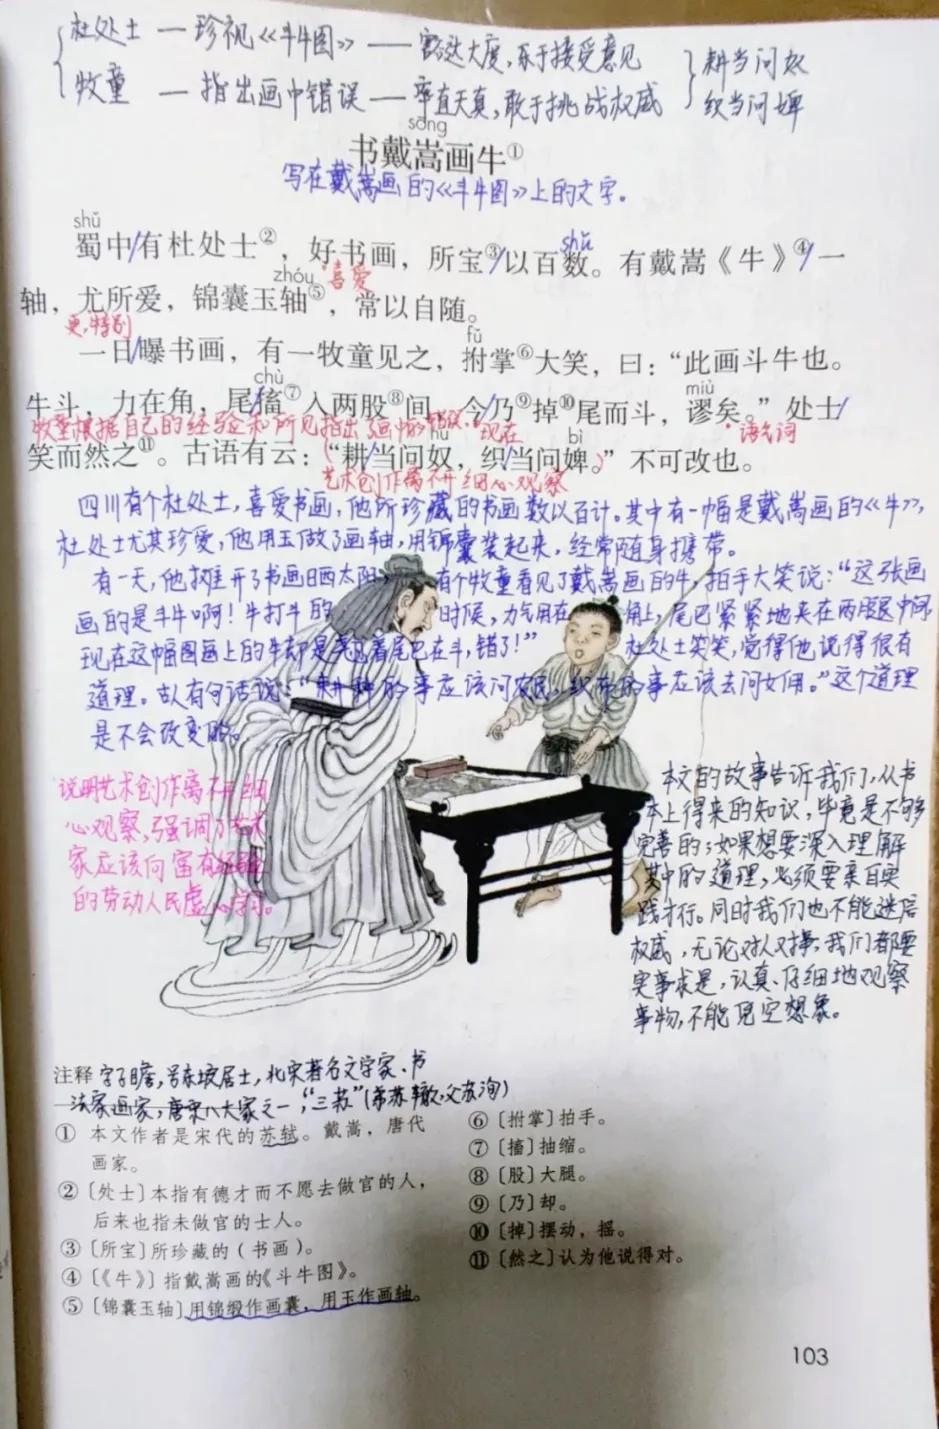 杜处士 — 珍视《斗牛图》 — 豁达大度，乐于接受意见
牧童 — 指出画中错误 — 率直天真，敢于挑战权威
耕当问奴
织当问婢
sōng
书戴嵩画牛①
写在戴嵩画的《斗牛图》上的文字。
shǔ
shǔ
蜀中/有杜处士②，好书画，所宝③/以百数。有戴嵩《牛》④/一
zhóu
喜爱
轴，尤所爱，锦囊玉轴⑤，常以自随。
更，特别
fǔ
一日/曝书画，有一牧童见之，拊掌⑥大笑，曰：“此画斗牛也。
chù
miù
牛斗，力在角，尾/搐⑦入两股⑧间，今/乃⑨掉⑩尾而斗，谬矣。”处士/
牧童根据自己的经验和所见指出了画中的错误。
现在
语气词
nú
bì
笑而然之⑪。古语有云：“耕/当问奴，织/当问婢。”不可改也。
艺术创作离不开细心观察
四川有个杜处士，喜爱书画，他所珍藏的书画数以百计。其中有一幅是戴嵩画的《牛》，
杜处士尤其珍爱，他用玉做了画轴，用锦囊装起来，经常随身携带。
有一天，他摊开了书画晒太阳 有个牧童看见了戴嵩画的牛，拍手大笑说：“这张画
画的是斗牛啊！牛打斗的 时候，力气用在 角上，尾巴紧紧地夹在两腿中间
现在这幅图画上的牛却是 着尾巴在斗，错了！” 杜处士笑笑，觉得他说得很有
道理。古人有句话说：“耕种的事应该问农民，织布的事应该去问女佣。”这个道理
是不会改变的。
说明艺术创作离不开细
心观察，强调了艺术
家应该向富有经验
的劳动人民虚心学习。
本文的故事告诉我们，从书
本上得来的知识，毕竟是不够
完善的；如果想要深入理解
其中的道理，必须要亲自实
践才行。同时我们也不能迷信
权威，无论对人对事，我们都要
实事求是，认真、仔细地观察
事物，不能凭空想象。
注释 字子瞻，号东坡居士，北宋著名文学家、书
法家画家，唐宋八大家之一，“三苏”（弟苏辙，父苏洵）
① 本文作者是宋代的苏轼。戴嵩，唐代
画家。
②〔处士〕本指有德才而不愿去做官的人，
后来也指未做官的士人。
③〔所宝〕所珍藏的（书画）。
④〔《牛》〕指戴嵩画的《斗牛图》。
⑤〔锦囊玉轴〕用锦缎作画囊，用玉作画轴。
⑥〔拊掌〕拍手。
⑦〔搐〕抽缩。
⑧〔股〕大腿。
⑨〔乃〕却。
⑩〔掉〕摆动，摇。
⑪〔然之〕认为他说得对。
103